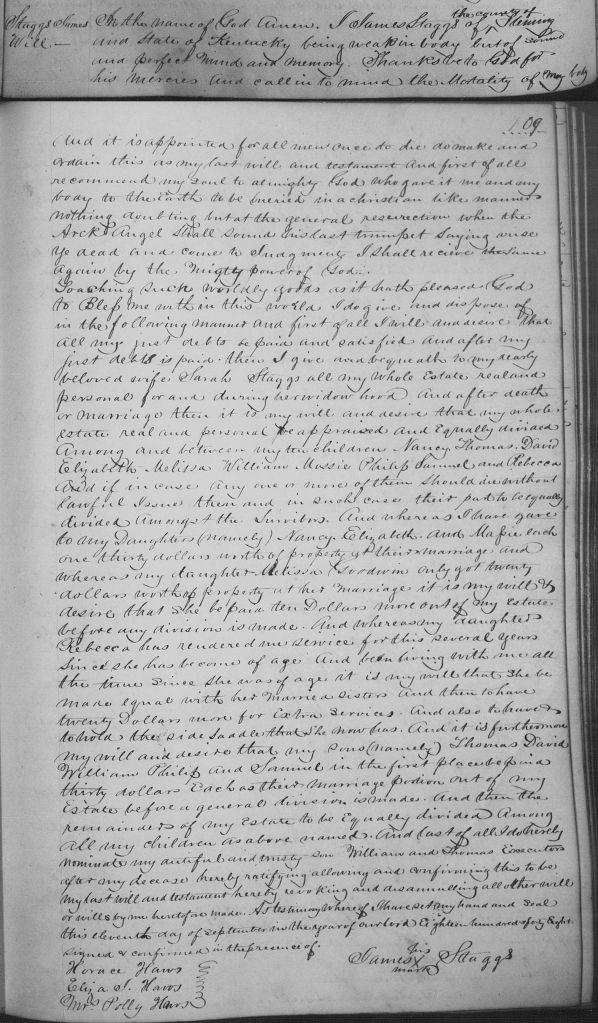 Staggs James
Will.—
In the name of God Amen. I James Staggs of the county of Fleming
and State of Kentucky being weak in body but of sound
and perfect mind and memory. Thanks be to God for
his mercies and call in to mind the Mortality of my body
109
And it is appointed for all men once to die do make and
ordain this as my last will and testament And first of all
recommend my soul to almighty God who gave it me and my
body to the Earth to be buried in a christian like manner
nothing doubting but at the general resurection when the
Arck Angel shall sound his last trumpet saying arise
ye dead and come to Judgment I shall recieve the same
again by the mighty power of God.
Toaching such worldly goods as it hath pleased God
to Bless me with in this world I do give and dispose of
in the following manner And first of all I will and desire that
all my just debts be paid and satisfied and after my
just debts is paid. then I give and bequeath to my dearly
beloved wife Sarah Staggs all my whole Estate real and
personal for and during her widow hood And after death
or marriage then it is my will and desire that my whole
estate real and personal be appraised and Equally divided
Among and between my ten children Nancy Thomas. David
Elizabeth Melissa William Massie Philip Samuel and Rebecca
And if in case Any one or more of them should die without
lawful Issue then and in such case their part to be equally
divided Amongst the Survitors. And whereas I have gave
to my Daughters (namely) Nancy Elizabeth. And Massie each
one thirty dollars worth of property at their marriage and
whereas my daughter Melissa Goodwin only got twenty
dollars worth of property at her marriage it is my will &
desire that she be paid ten Dollars more out of my Estate
before any division is made. And whereas my daughter
Rebecca has rendered me service for this several years
since she has become of age And been living with me all
the time since she was of age it is my will that she be
made equal with her married sisters And then to have
twenty Dollars more for Extra services. And also to have &
to hold the side saddle that she now has. And it is furthermore
my will and desire that my sons (namely) Thomas David
William Philip And Samuel in the first place be paid
thirty dollars Each as their marriage portion out of my
Estate before a general division is made. And then the
remainder of my Estate to be Equally divided Among
all my children as above named. And last of all I do hereby
nominate my dutiful and trusty son William and Thomas Executors
after my decease hereby ratifying allowing and confirming this to be
my last will and testament hereby revoking and disannulling all other will
or wills by me heretofore made. As testimony whereof I have set my hand and seal
this eleventh day of september in the year of our lord Eighteen hundred & forty Eight
signed & confirmed in the presence of.
Horace Haws
Eliza S. Haws
Mrs Polly Haws
James his X mark Staggs